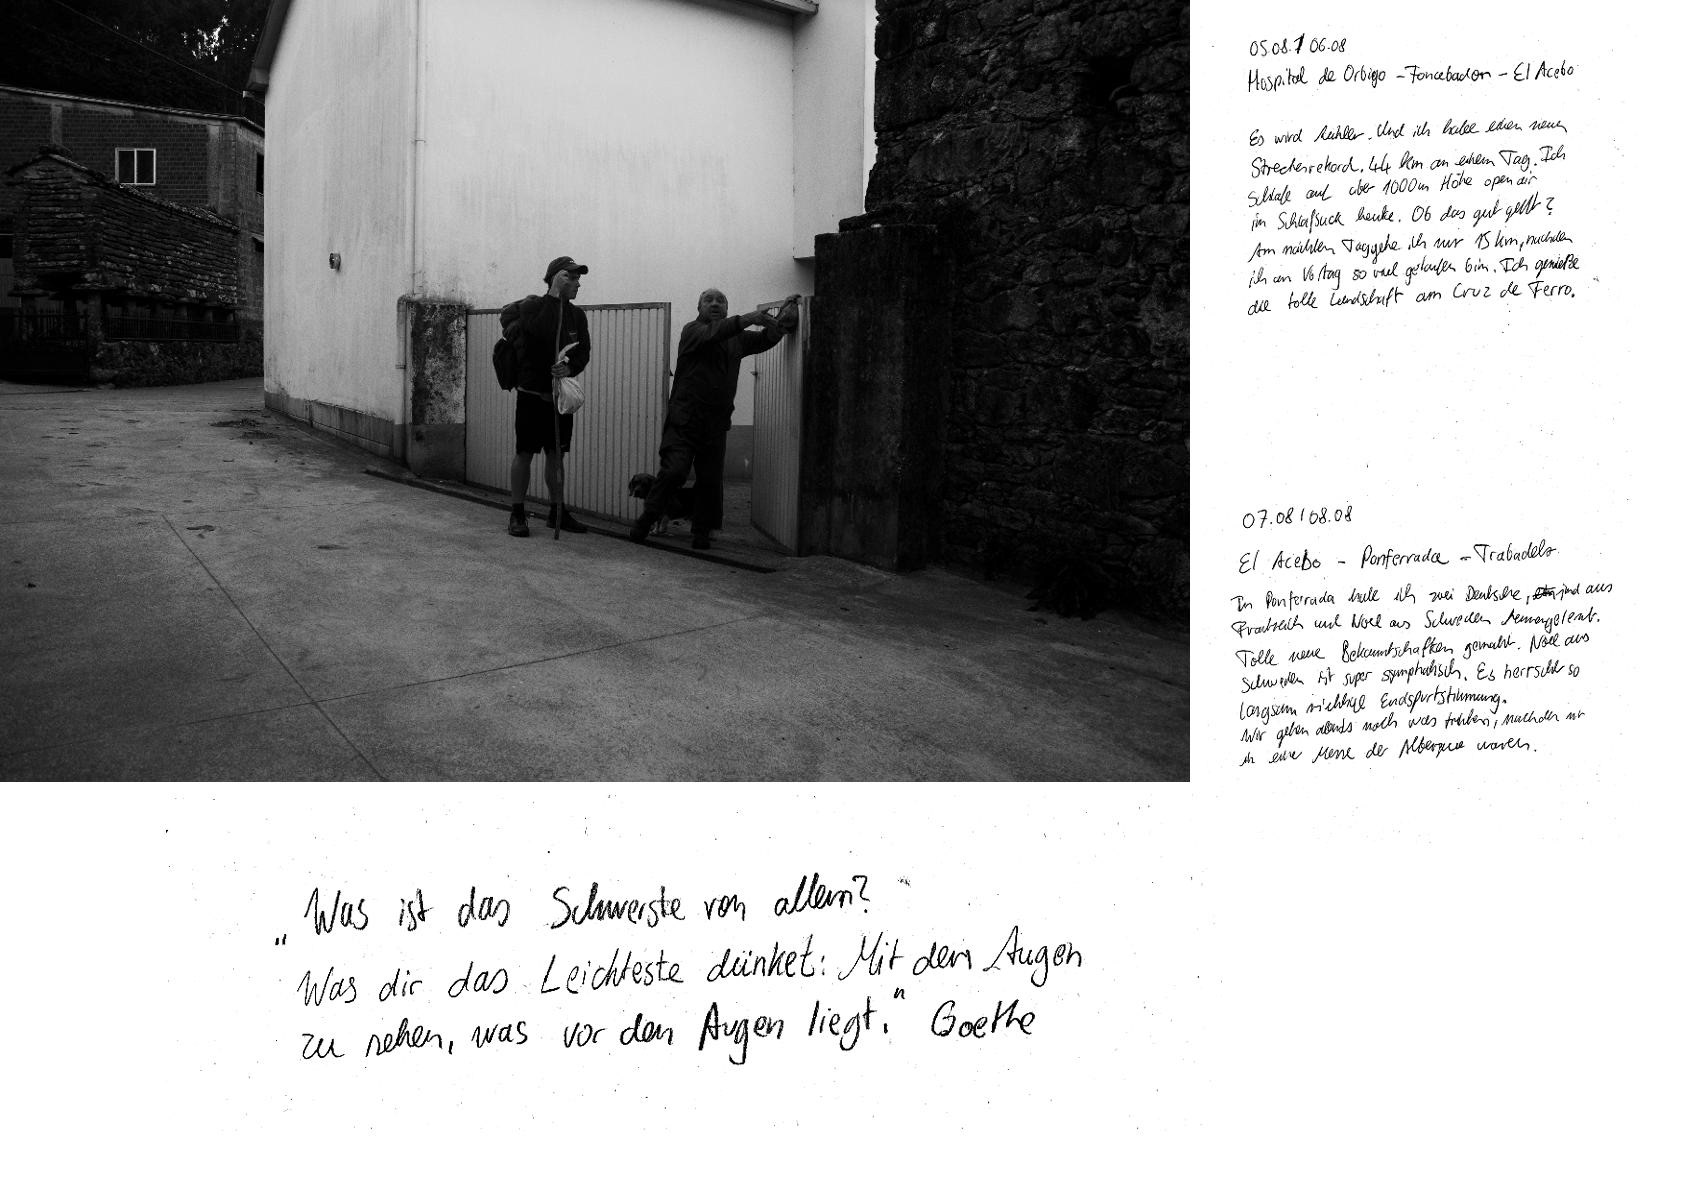 05.08. / 06.08
Hospital de Orbigo - Foncebadon - El Acebo
Es wird kühler. Und ich habe einen neuen
Streckenrekord. 44 km an einem Tag. Ich
schlafe auf über 1000m Höhe open air
im Schlafsack heute. Ob das gut geht?
Am nächsten Tag gehe ich nur 15 km, nachdem
ich am Vortag so viel gelaufen bin. Ich genieße
die tolle Landschaft am Cruz de Ferro.
07.08 / 08.08
El Acebo - Ponferrada - Trabadelo
In Ponferrada habe ich zwei Deutsche, sind aus
Frankreich und Noel aus Schweden kennengelernt.
Tolle neue Bekanntschaften gemacht. Noel aus
Schweden ist super symphatisch. Es herrscht so
langsam richtige Endspurtstimmung.
Wir gehen abends noch was trinken, nachdem wir
in einer Messe der Alberque waren.
„Was ist das Schwerste von allem?
Was dir das Leichteste dünket: Mit den Augen
zu sehen, was vor den Augen liegt." Goethe